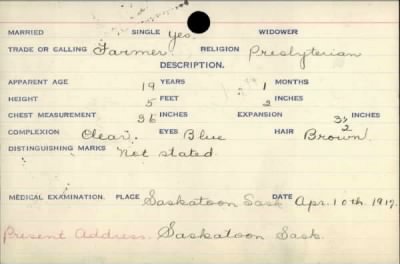 MARRIED SINGLE yes. WIDOWER
TRADE OR CALLING Farmer. RELIGION Presbyterian
DESCRIPTION.
APPARENT AGE 19 YEARS 1 MONTHS
HEIGHT 5 FEET 2 INCHES
CHEST MEASUREMENT 36 INCHES EXPANSION 3½ INCHES
COMPLEXION Clear. EYES Blue HAIR Brown.
DISTINGUISHING MARKS Not stated.
MEDICAL EXAMINATION. PLACE Saskatoon Sask DATE Apr. 10th. 1917.
Present Address. Saskatoon Sask.